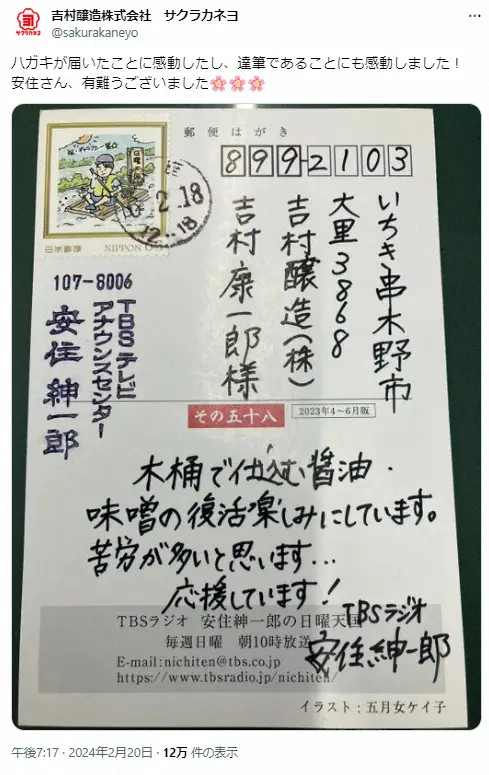 吉村醸造株式会社 サクラカネヨ
@sakurakaneyo
ハガキが届いたことに感動したし、達筆であることにも感動しました！
安住さん、有難うございました🌸🌸🌸
郵便はがき
899-2103
いちき串木野市
大里3868
吉村醸造(株)
吉村康一郎様
日本郵便 NIPPON
2.18
12-18
107-8006
TBSテレビ
アナウンスセンター
安住紳一郎
その五十八
2023年4〜6月版
木桶で仕込む醤油・
味噌の復活楽しみにしています。
苦労が多いと思います…
応援しています！
TBSラジオ
安住紳一郎
TBSラジオ 安住紳一郎の日曜天国
毎週日曜 朝10時放送
E-mail:nichiten@tbs.co.jp
https://www.tbsradio.jp/nichiten/
イラスト：五月女ケイ子
午後7:17 · 2024年2月20日 · 12万 件の表示